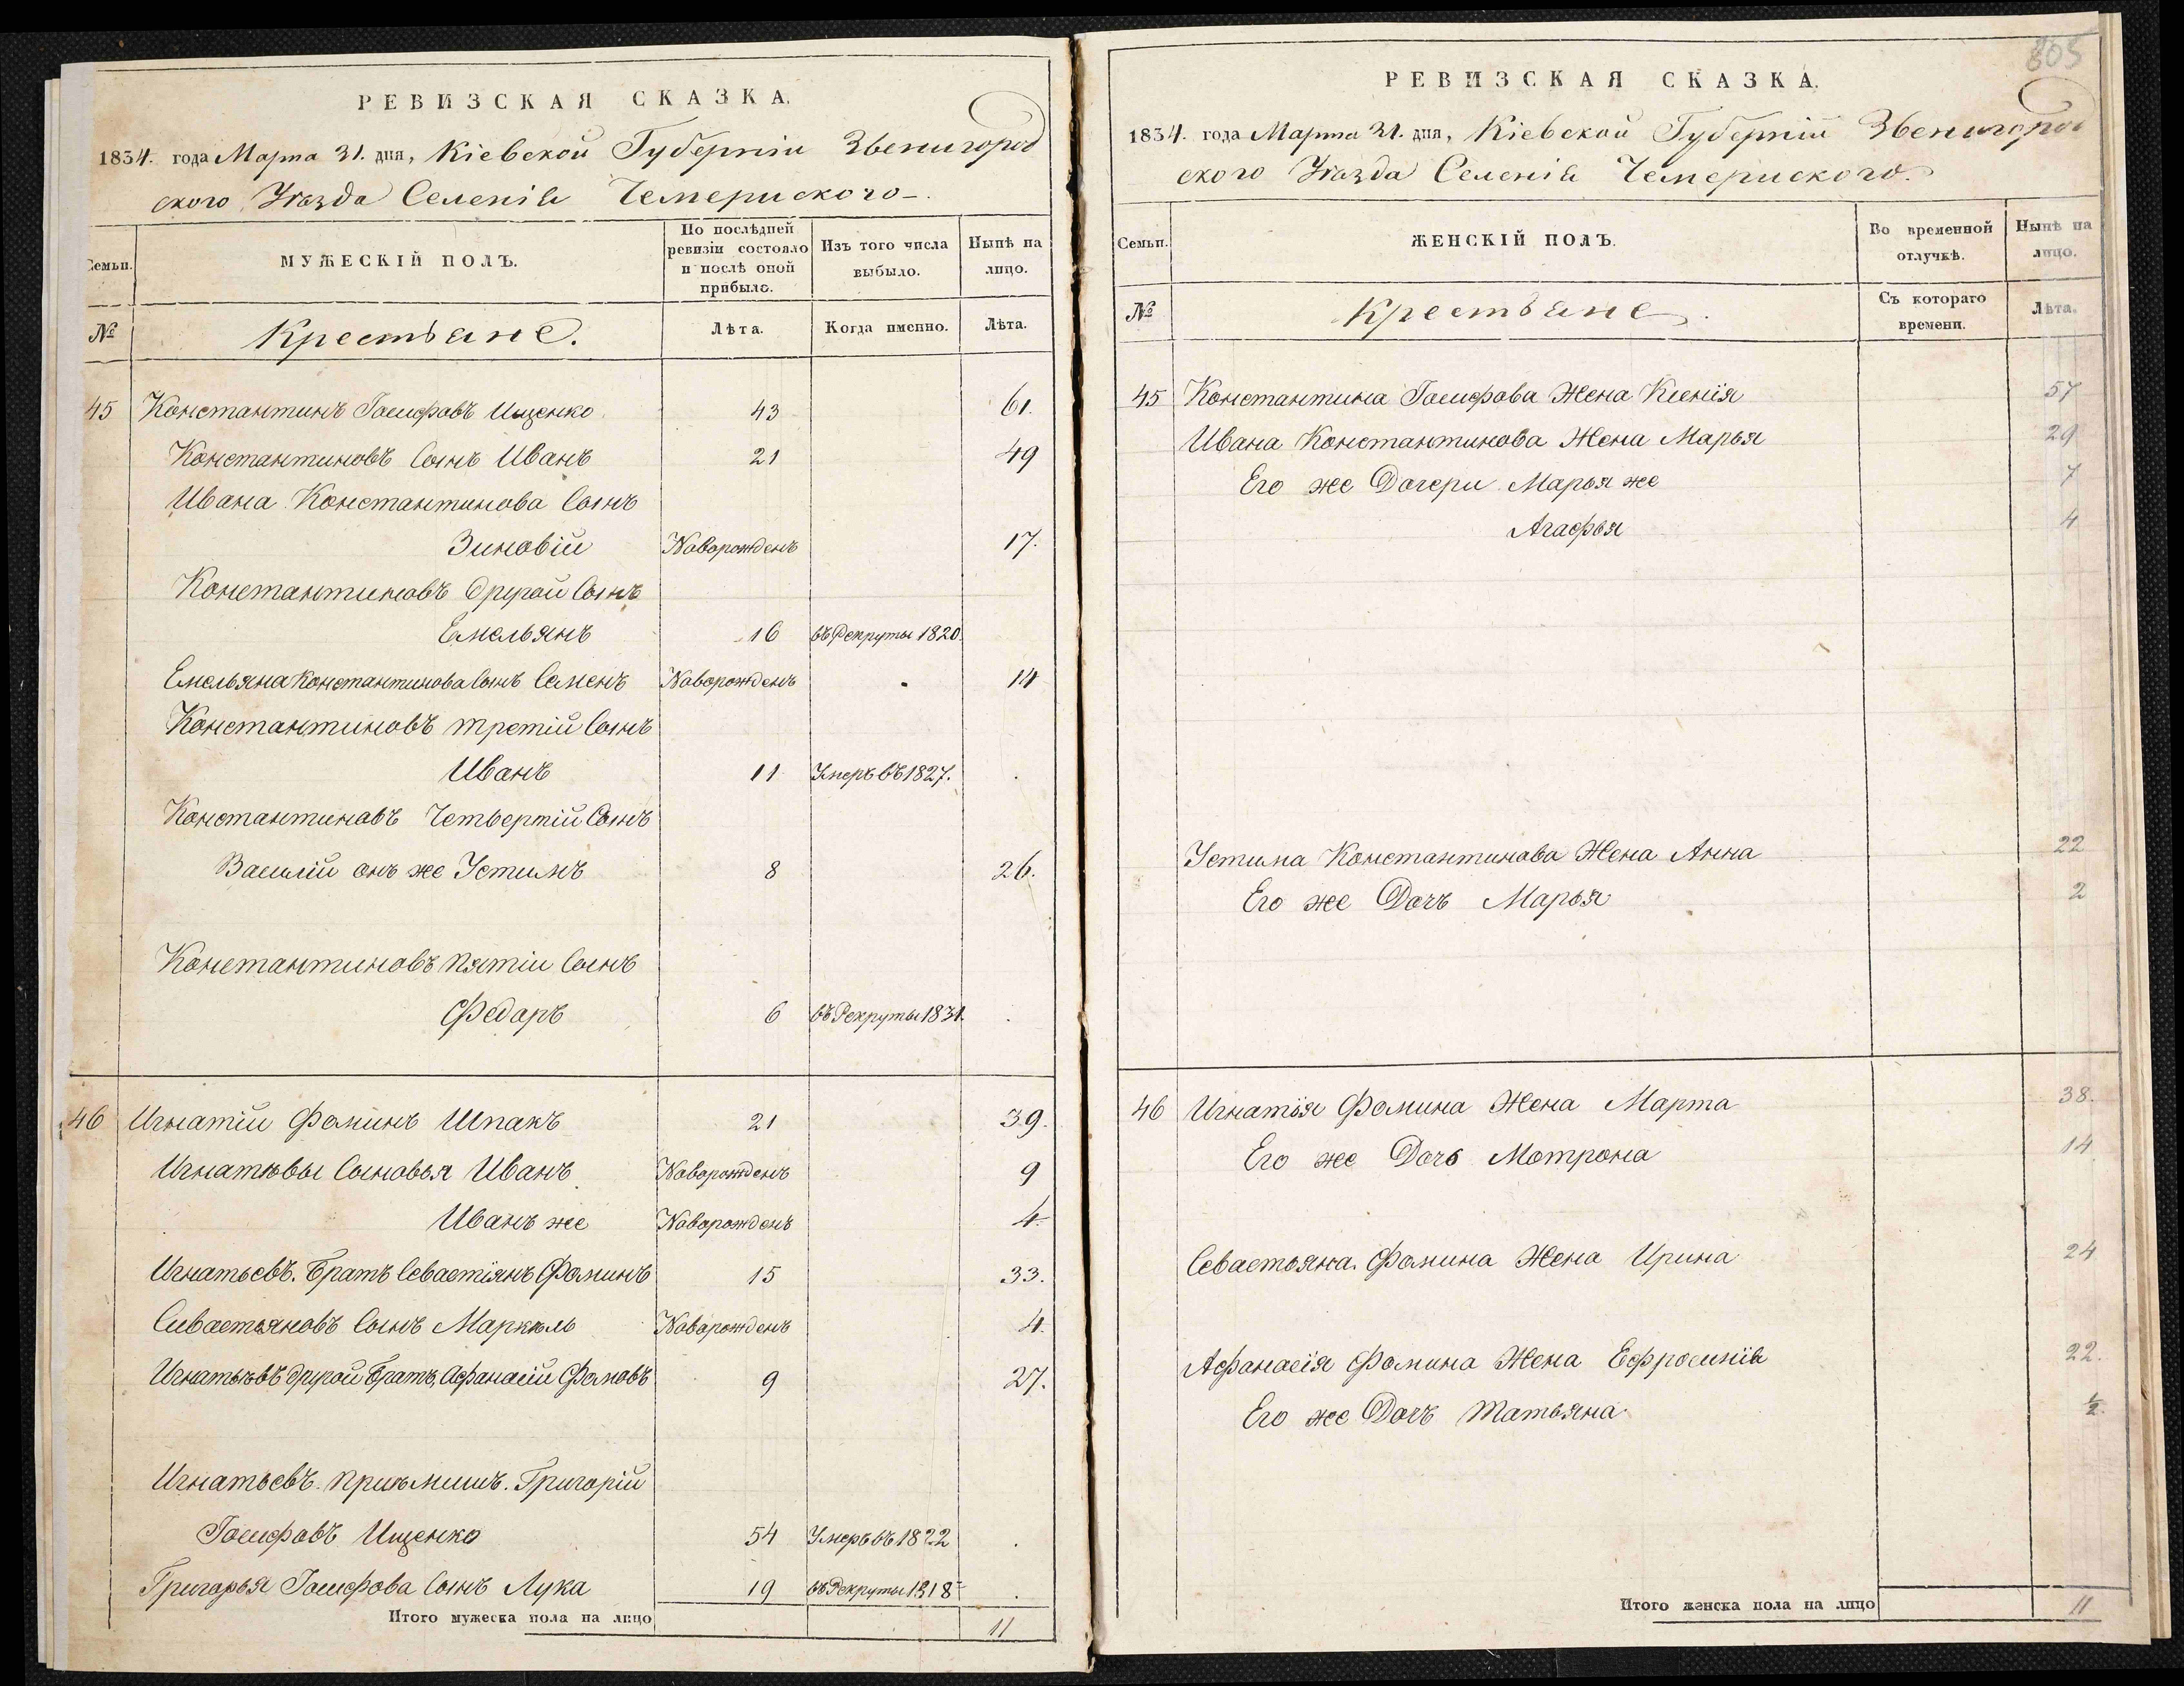 РЕВИЗСКАЯ СКАЗКА.
1834. года Марта 31. дня, Кіевской Губерніи Звенигород
ского Уѣзда Селенія Чемериского.
Семьи.
МУЖЕСКІЙ ПОЛЪ.
По послѣдней ревизіи состояло и послѣ оной прибыло.
Изъ того числа выбыло.
Нынѣ на лицо.
№
Крестьяне.
Лѣта.
Когда именно.
Лѣта.
45 Константинъ Іосифовъ Ищенко 43 61.
Константиновъ Сынъ Иванъ 21 49
Ивана Константинова Сынъ
Зиновій Новорожденъ 17.
Константиновъ другой Сынъ
Емельянъ 16 въ Рекруты 1820.
Емельяна Константинова Сынъ Семенъ Новорожденъ 14
Константиновъ третій Сынъ
Иванъ 11 Умеръ въ 1827.
Константиновъ Четвертій Сынъ
Василій онъ же Устинъ 8 26.
Константиновъ пятіи Сынъ
Федоръ 6 въ Рекруты 1831.
46 Игнатіи Фоминъ Шпакъ 21 39.
Игнатювы Сыновья Иванъ Новорожденъ 9
Иванъ же Новорожденъ 4.
Игнатьевъ. Братъ Севастіянъ Фоминъ 15 33.
Сивастьяновъ Сынъ Маркѣль Новорожденъ 4.
Игнатьевъ другой Братъ, Афанасій Фомовъ 9 27.
Игнатьевъ. приѣмишъ. Григорій
Іосифовъ Ищенко 54 Умеръ въ 1822
Григорья Іосифова Сынъ Лука 19 въ Рекруты 1818
Итого мужеска пола на лицо 11
805
РЕВИЗСКАЯ СКАЗКА.
1834. года Марта 31. дня, Кіевской Губерніи Звенигород
ского Уѣзда Селенія Чемериского.
Семьи.
ЖЕНСКІЙ ПОЛЪ.
Во временной отлучкѣ.
Нынѣ на лицо.
№
Крестьяне.
Съ котораго времени.
Лѣта.
45 Константина Іосифова Жена Ксенія 57
Ивана Константинова Жена Марья 29
Его же Дочери Марья же 7
Агафья 4
Устина Константинова Жена Анна 22
Его же Дочъ Марья 2
46 Игнатія Фомина Жена Марта 38.
Его же Дочь Мотрона 14
Севастьяна. Фомина Жена Ирина 24
Афанасія Фомина Жена Ефросинія 22.
Его же Дочъ Татьяна ½.
Итого женска пола на лицо 11